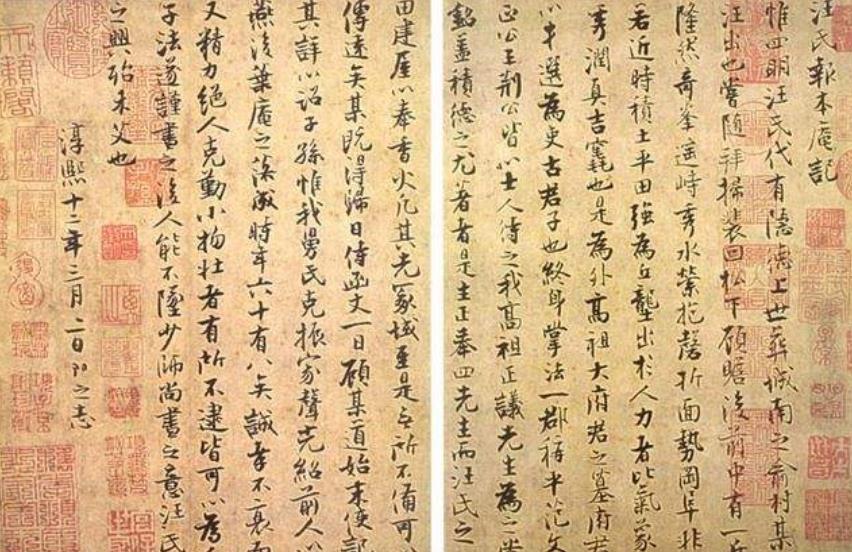 汪氏報本庵記
惟四明汪氏代有隱德上世葬城南之俞村某
汪出也嘗隨拜掃裴回松下顧瞻後前中有一
隆然奇峯遥峙秀水縈抱磬折面勢岡阜非
若近時積土平田強為丘壟出於人力者比氣象
秀潤真吉竁也是為外高祖大府君之墓府君
以才選為吏古君子也終身掌法一郡稱平范文
正公王荆公皆以士人待之我高祖正議先生為之
銘蓋積德之尤著者是生正奉四先生而汪氏之
田建屋以奉香火凡其先冢域至是無所不備可
傳遠矣某既得歸日侍函丈一日顧某道始末使記
其詳以詔子孫惟我舅氏克振家聲光紹前人以
燕後葉庵之落成時年六十有八矣誠孝不衰而
又精力絕人克勤小物壯者有所不逮皆可以為
子法遂謹書之後人能不墜少師尚書之意汪氏
之興殆未艾也
淳熙十二年三月二日即之志